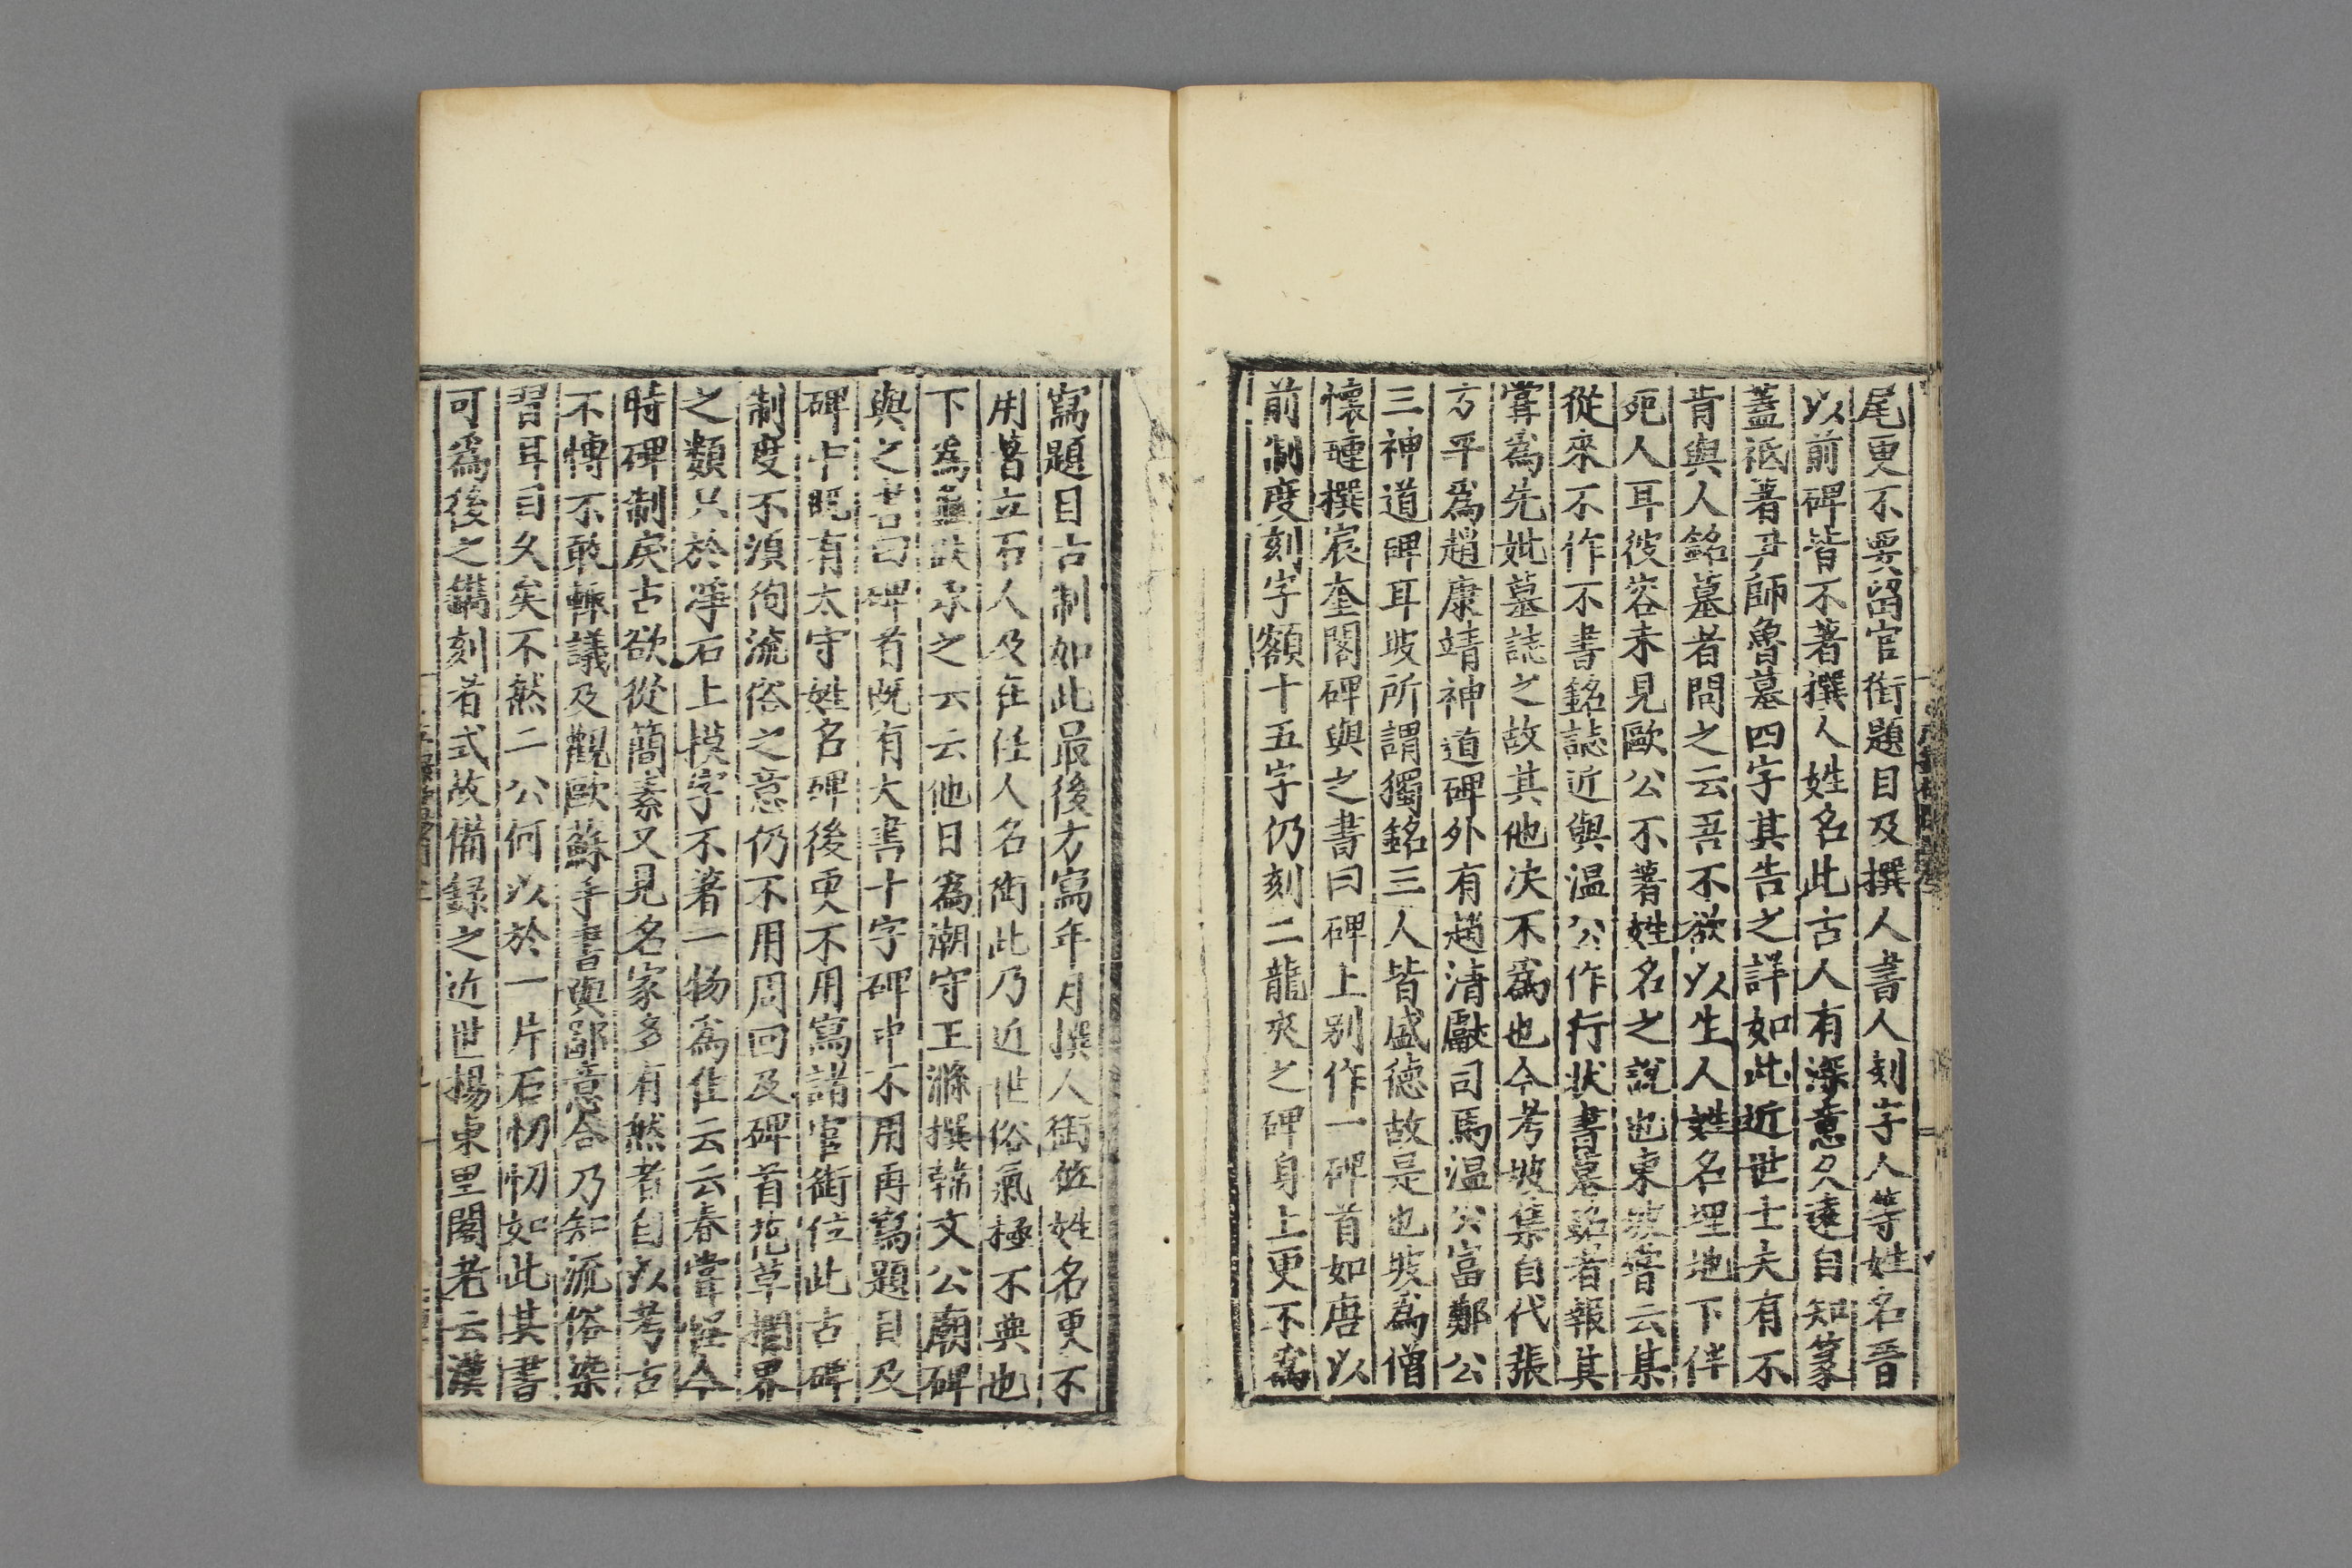 尾更不要留官銜題目及撰人書人刻字人等姓名晉
以前碑皆不著撰人姓名此古人有深意久遠自知篆
蓋祗著尹師魯墓四字其告之詳如此近世士夫有不
肯與人銘墓者問之云吾不欲以生人姓名埋地下伴
死人耳彼容未見歐公不著姓名之說也東坡嘗云某
從來不作不書銘誌近與温公作行狀書墓銘者報其
嘗為先妣墓誌之故其他决不為也今考坡集自代張
方平為趙康靖神道碑外有趙清獻司馬温公富鄭公
三神道碑耳坡所謂獨銘三人皆盛德故是也坡為僧
懷璉撰宸奎閣碑與之書曰碑上别作一碑首如唐以
前制度刻字額十五字仍刻二龍夾之碑身上更不為
寫題目古制如此最後方寫年月撰人銜位姓名更不
用著立石人及在任人名銜此乃近世俗氣極不典也
下為龜趺承之云云他日為潮守王滌撰韓文公廟碑
與之書曰碑首既有大書十字碑中不用再寫題目及
碑中既有太守姓名碑後更不用寫諸官銜位此古碑
制度不湏徇流俗之意仍不用周回及碑首花草欄界
之類只於淨石上模字不著一物為佳云云春嘗怪今
時碑制戾古欲從簡素又見名家多有然者自以考古
不慱不敢輒議及觀歐蘇手書與鄙意合乃知流俗染
習耳目久矣不然二公何以於一片石忉忉如此其書
可為後之鐫刻者式故備録之近世楊東里閣老云漢